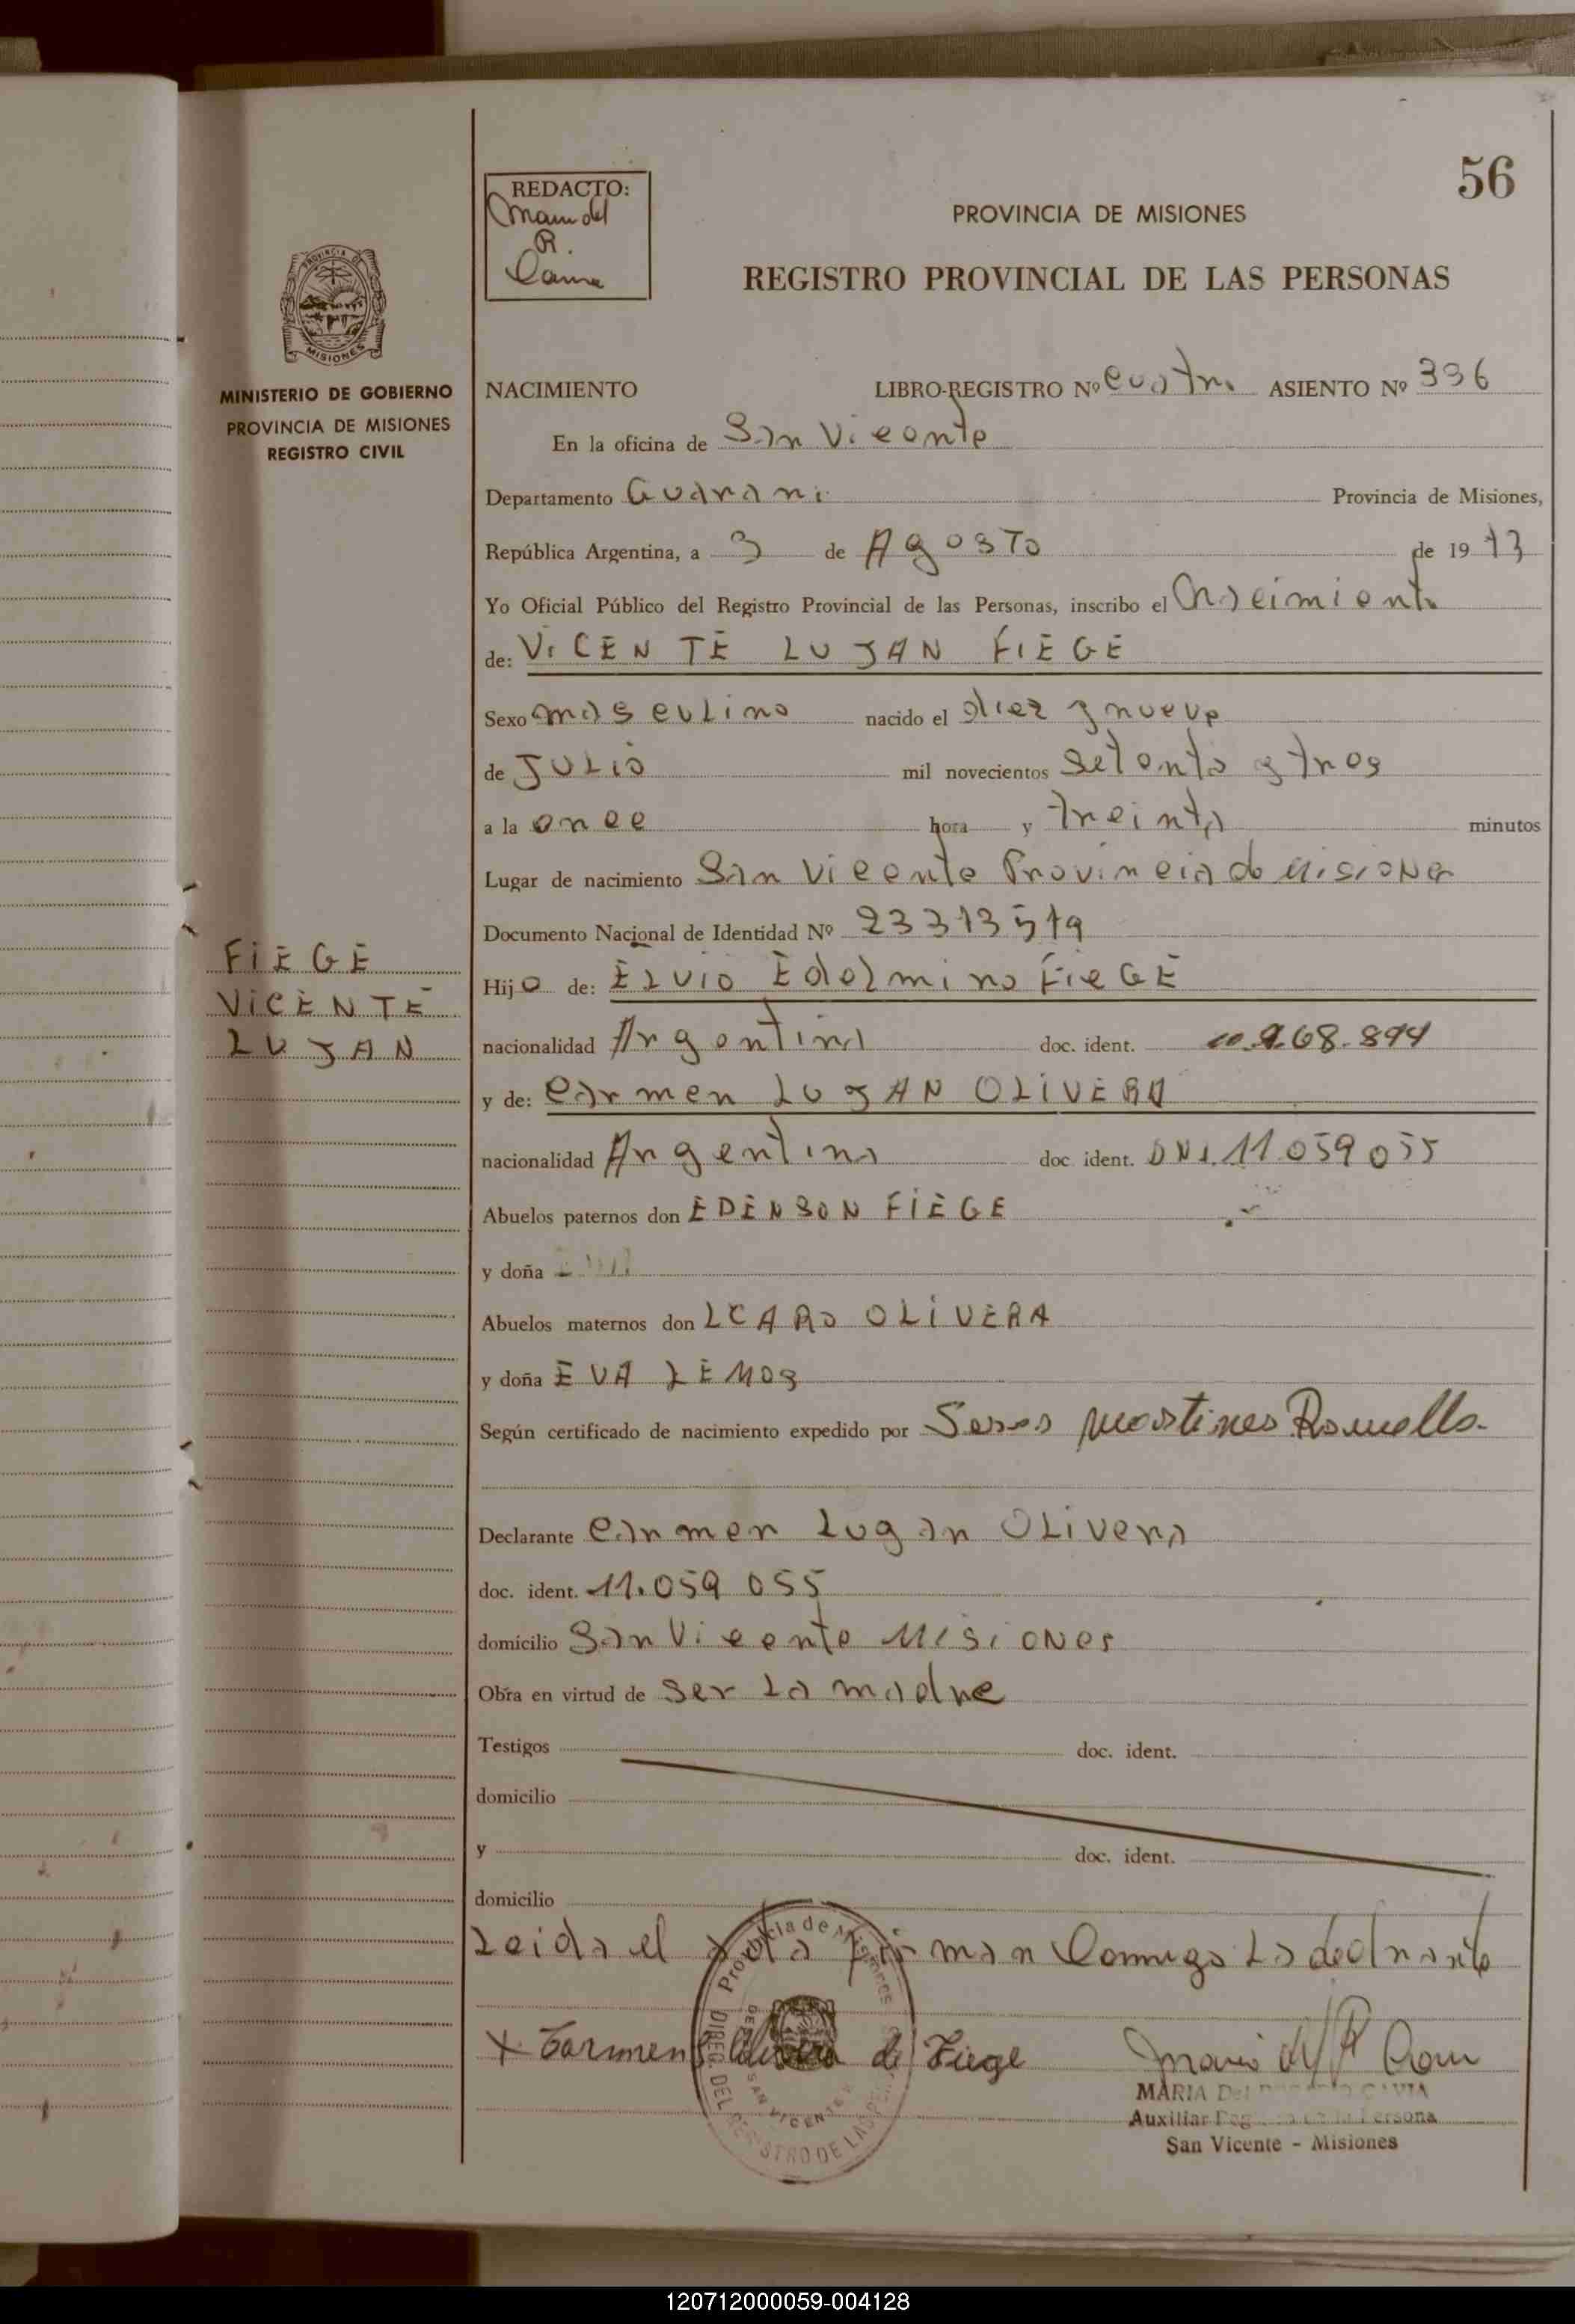 56
REDACTO:
R.
PROVINCIA DE MISIONES
REGISTRO PROVINCIAL DE LAS PERSONAS
MISIONES
MINISTERIO DE GOBIERNO
PROVINCIA DE MISIONES
REGISTRO CIVIL
NACIMIENTO LIBRO-REGISTRO Nº cuatro ASIENTO Nº 336
En la oficina de San Vicente
Departamento Guarani Provincia de Misiones,
República Argentina, a 3 de Agosto de 1973
Yo Oficial Público del Registro Provincial de las Personas, inscribo el Nacimiento
de: VICENTE LUJAN FIEGE
Sexo masculino nacido el diez y nueve
de JULIO mil novecientos setenta y tres
a la once hora y treinta minutos
Lugar de nacimiento San Vicente Provincia de Misiones
Documento Nacional de Identidad Nº 23313519
FIEGE
VICENTE
LUJAN
Hijo de: ELVIO Edelmino FIEGE
nacionalidad Argentina doc. ident.
y de: Carmen LUJAN OLIVERA
nacionalidad Argentina doc ident. DNI. 11.059 055
Abuelos paternos don EDENSON FIEGE
y doña
Abuelos maternos don OLIVERA
y doña EVA LEMOS
Según certificado de nacimiento expedido por
Declarante Carmen Lujan OLivera
doc. ident. 11.059 055
domicilio San Vicente MISIONES
Obra en virtud de ser La madre
Testigos doc. ident.
domicilio
y doc. ident.
domicilio
Leida el acta firman Conmigo La declarante
Provincia de Misiones
DIREC. DEL REGISTRO DE LAS PER
SAN VICENTE
x Carmen Olivera de Fiege
MARIA
Auxiliar Persona
San Vicente - Misiones
120712000059-004128